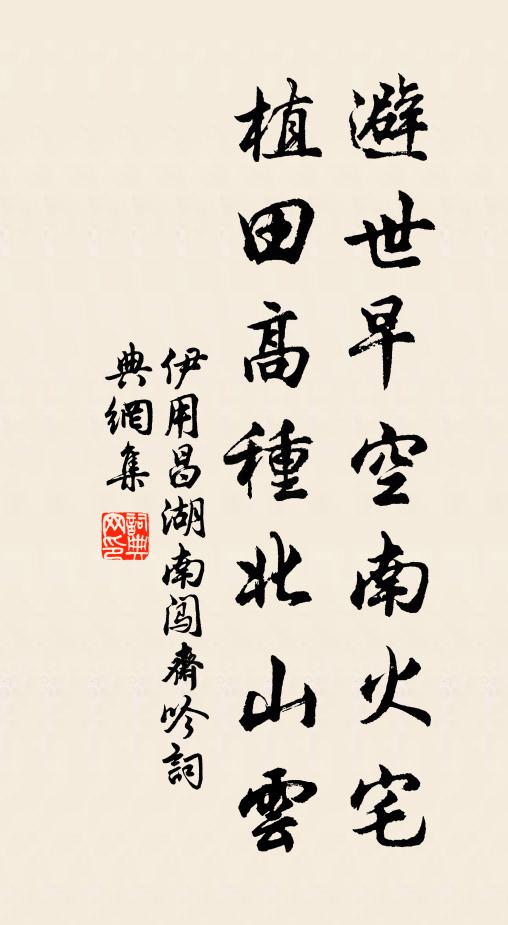 避世早空南火宅
植田高種北山雲
伊用昌湖南闖齋吟詞
典網集
詞典
網印